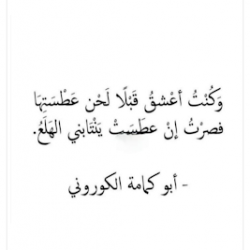 وَكُنْتُ أعْشقُ قَبْلًا لَحْن عَطْسَتِهَا
فصرْتُ إنْ عطَسَتْ يَنْتَابني الهَلَعُ.
- أبو كمامة الكوروني